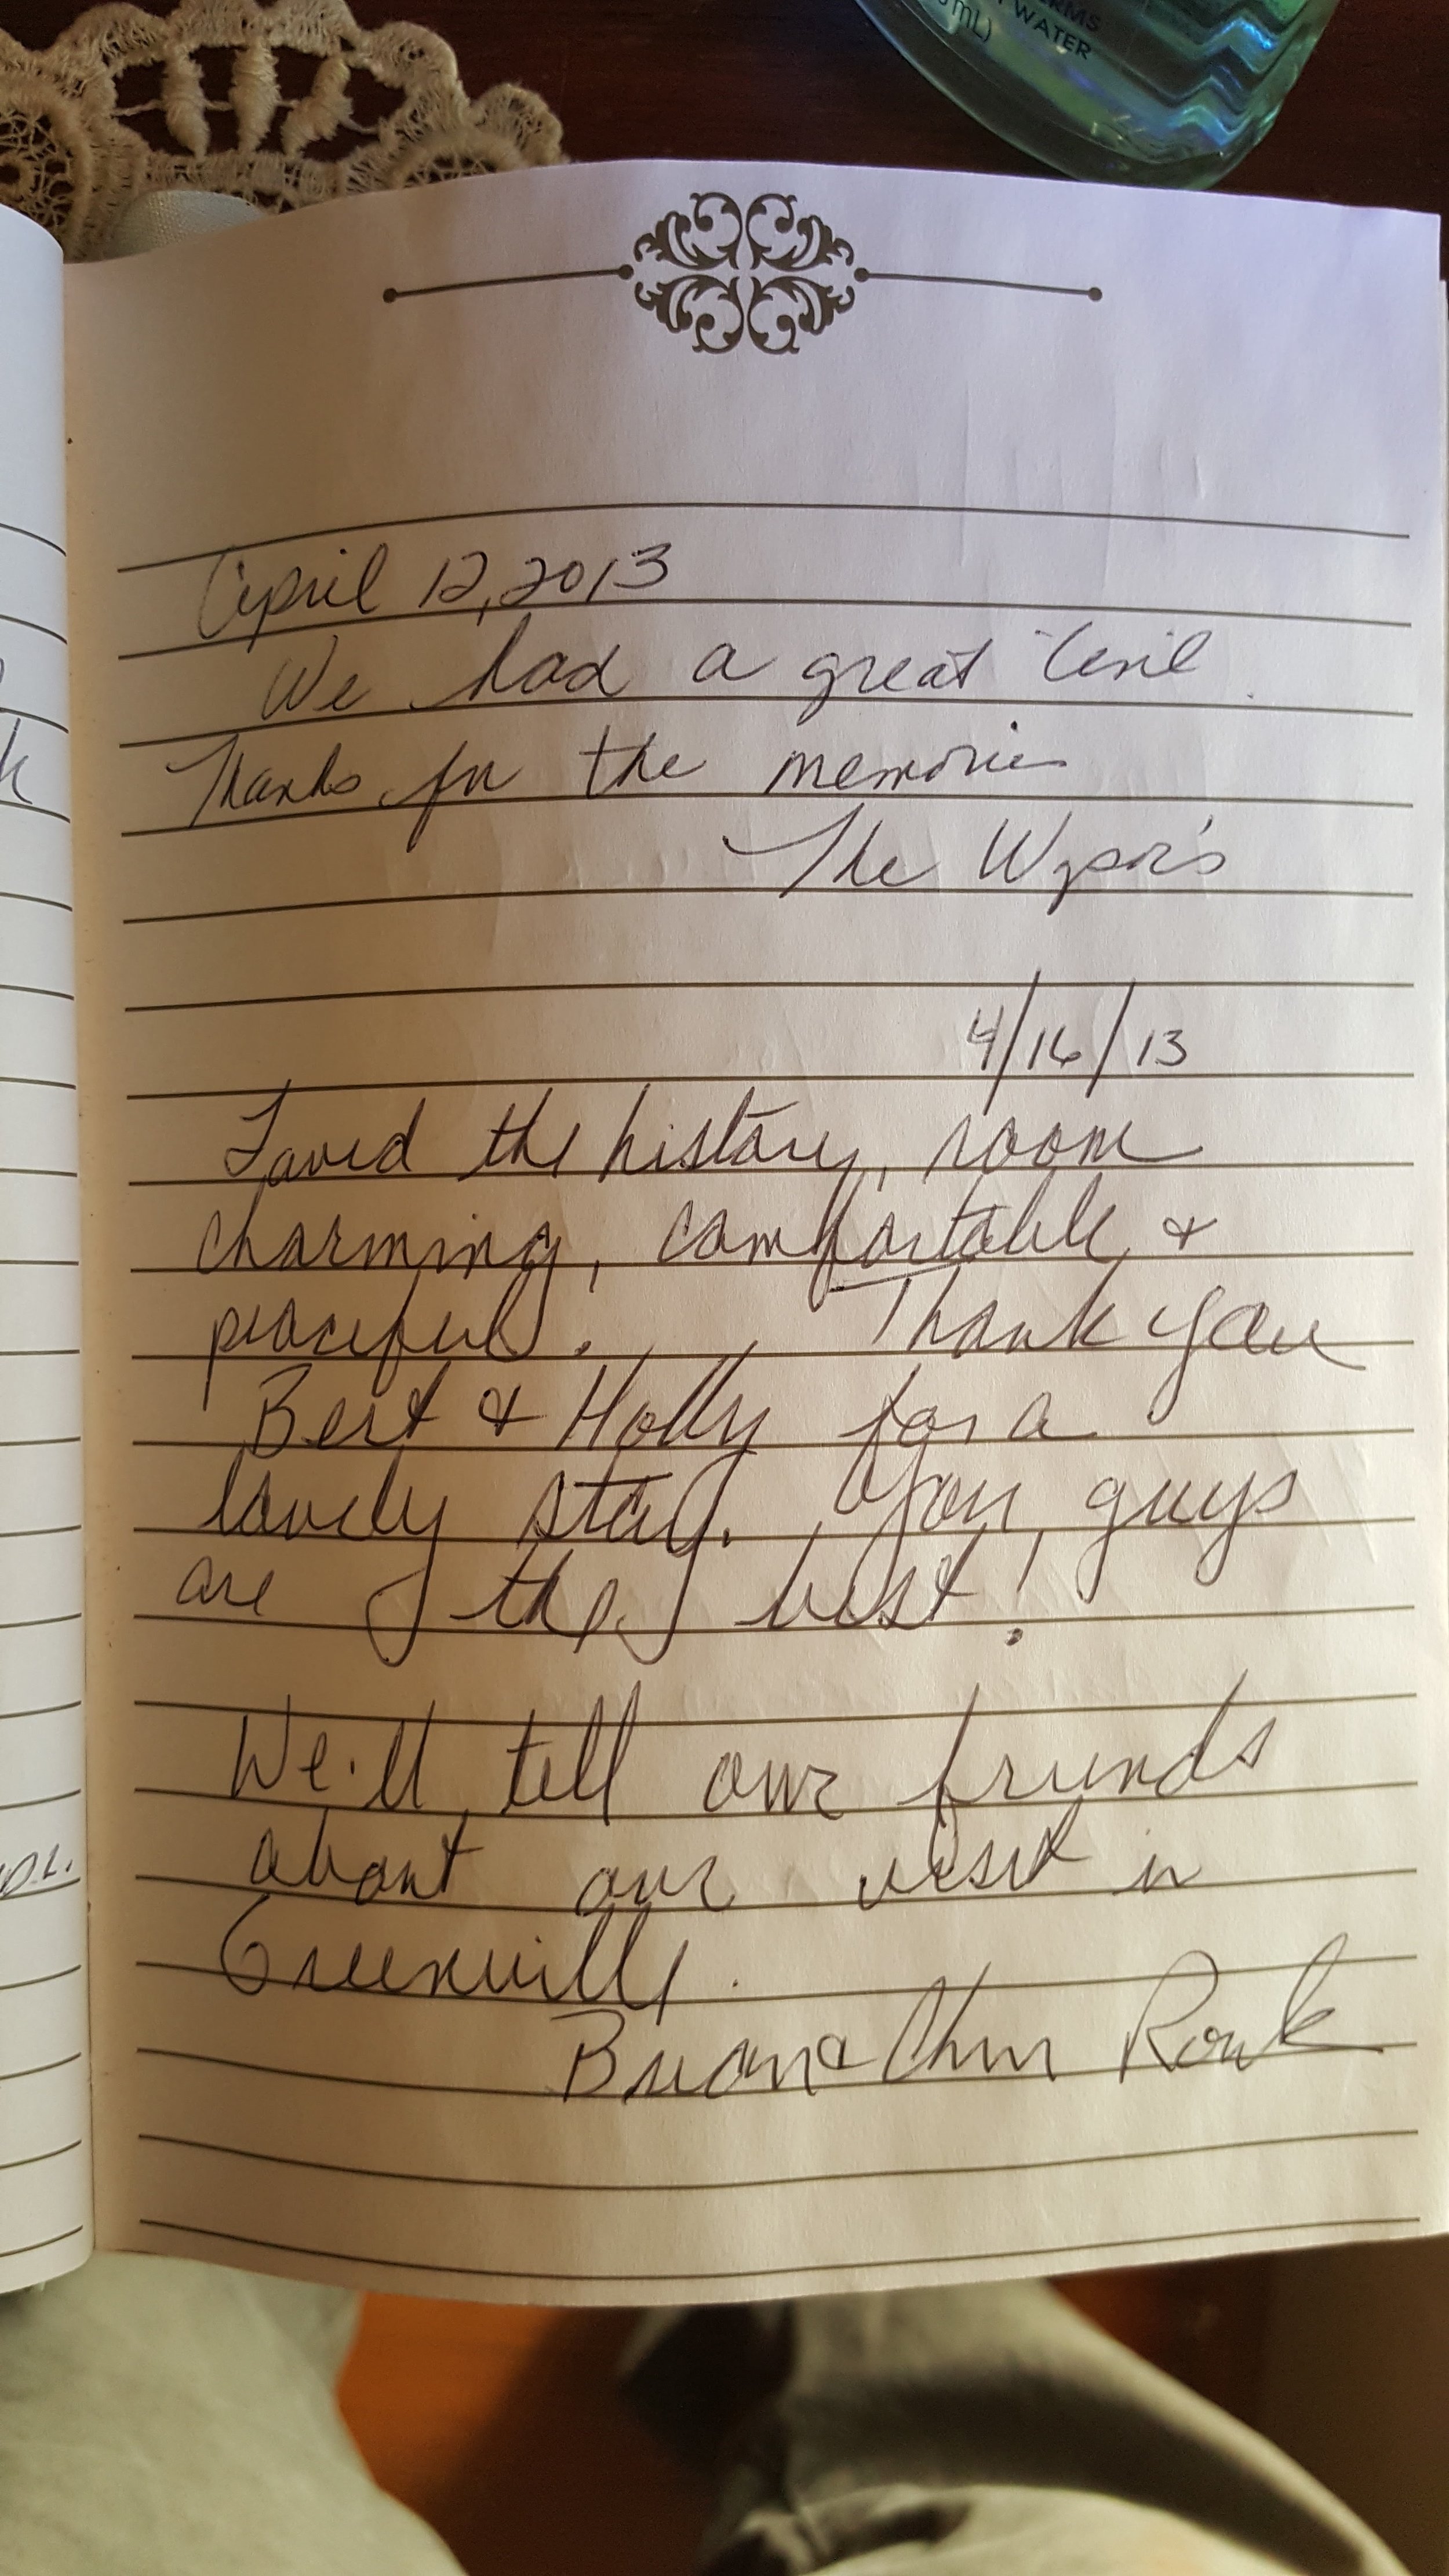 RMS
WATER
mL)
April 12, 2013
We had a great
Thanks for the memories
The Wysor's
4/16/13
Loved the history, room
charming, comfortable &
peaceful. Thank you
Bert & Holly for a
lovely stay. You guys
are the best!
We'll tell our friends
about our visit in
Greenville.
Brian & Chris